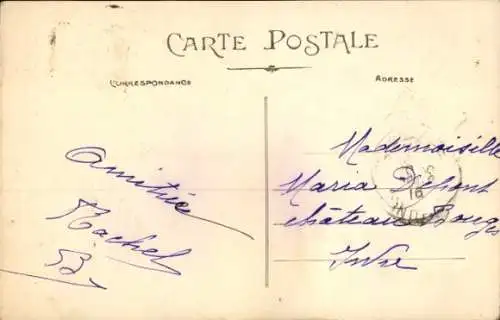 CARTE POSTALE
CORRESPONDANCE
ADRESSE
Amitiés
Rachel
B
Mademoiselle
Maria Dupont
château Rouges
Indre
16
INDRE